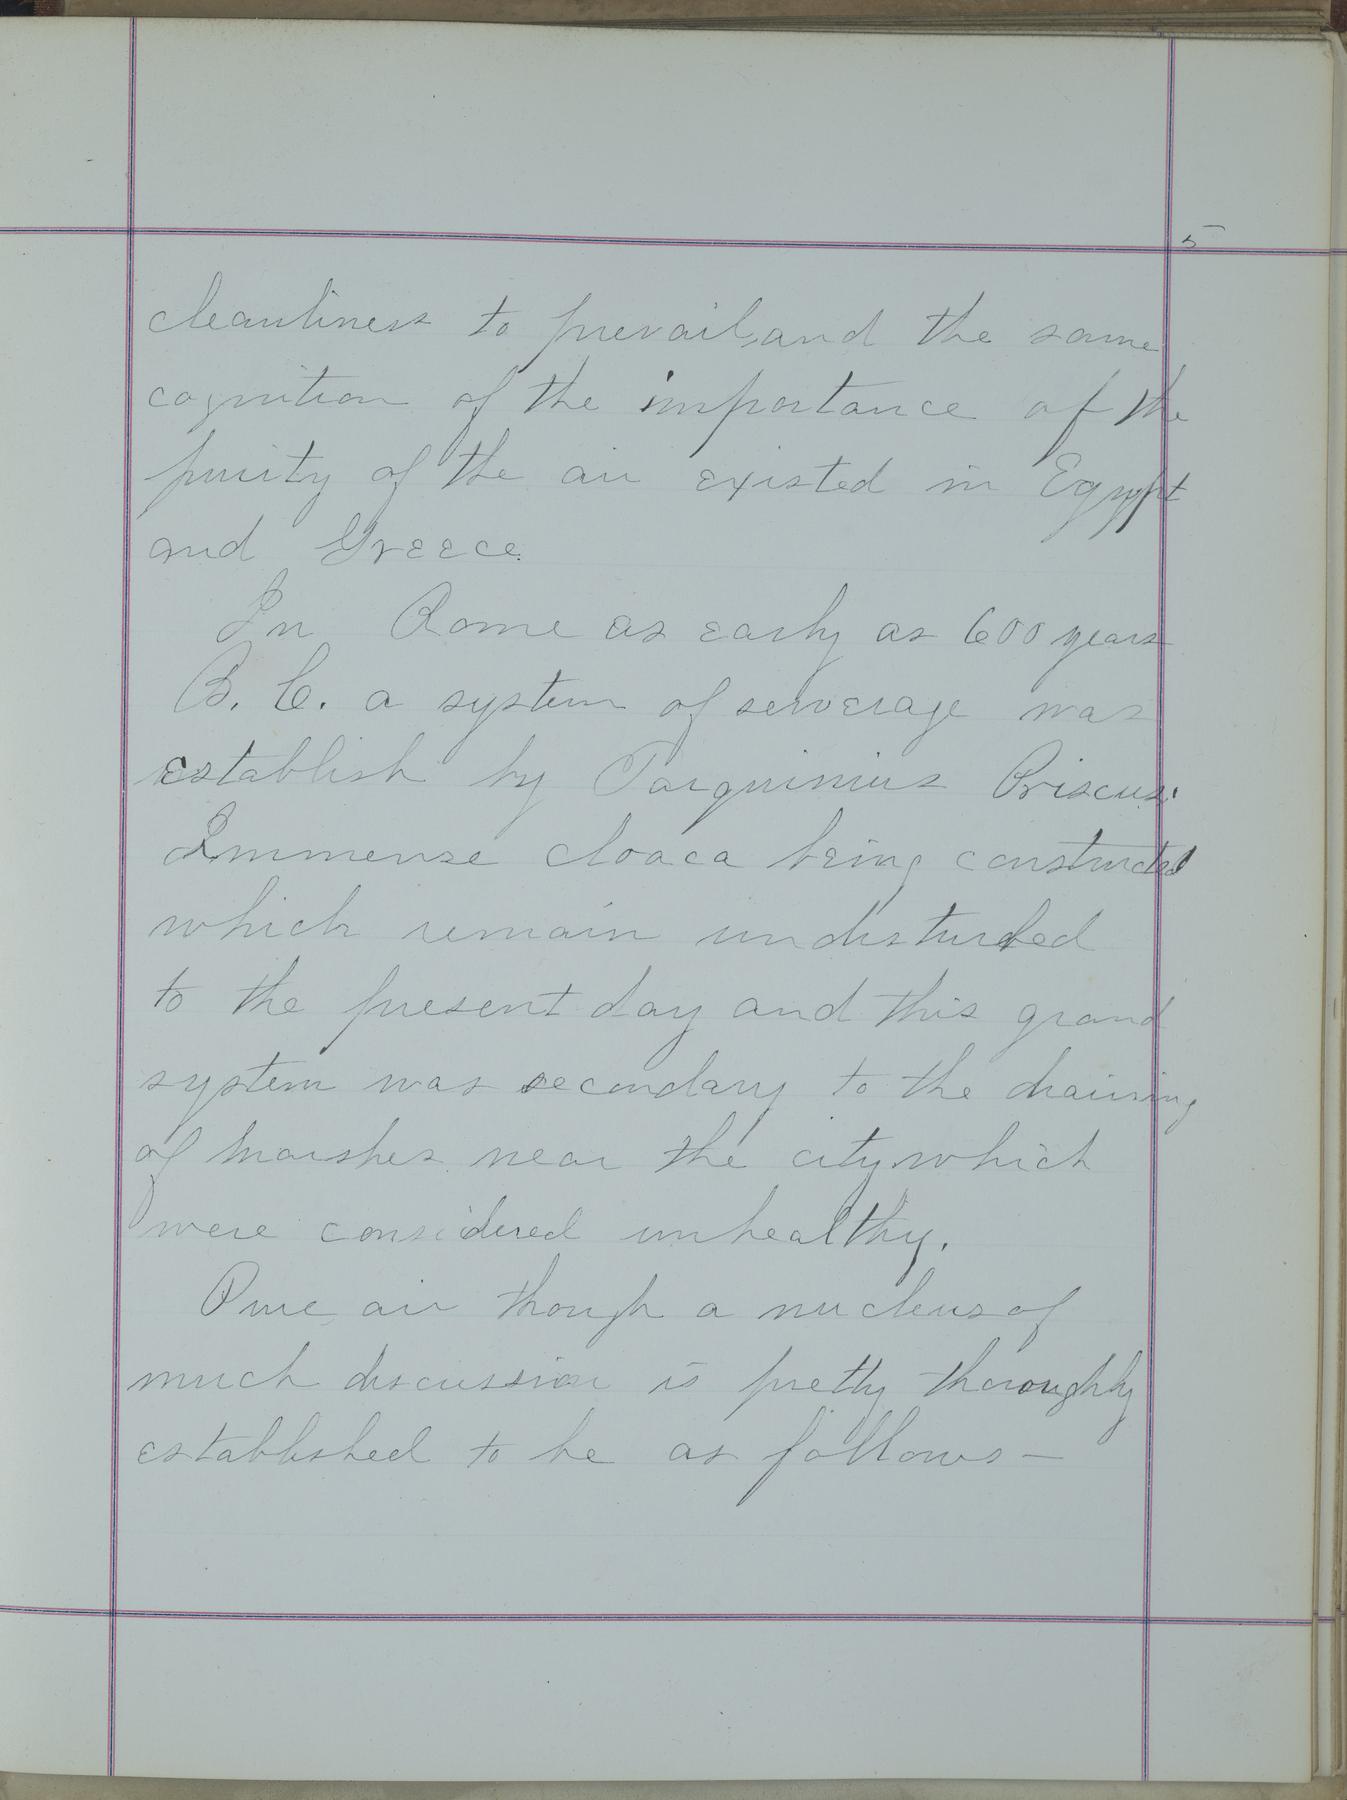 5
cleanliness to prevail, and the same
cognition of the importance of the
purity of the air existed in Egypt
and Greece.
In Rome as early as 600 years
B. C. a system of serverage was
establish by Tarquinius Priscus.
Immense cloaca being constructed
which remain undisturbed
to the present day and this grand
system was secondary to the draining
of marshes near the city which
were considered unhealthy.
Pure air though a nucleus of
much discussion is pretty thoroughly
established to be as follows—